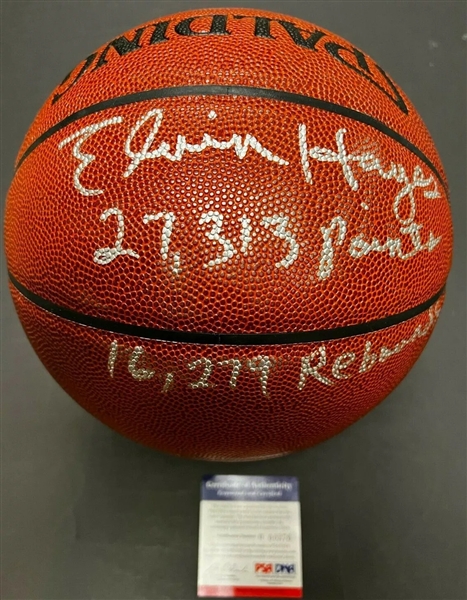 SPALDING
Elvin Hayes
27,313 Points
16,279 Rebounds
Certificate of Authenticity
PSA DNA